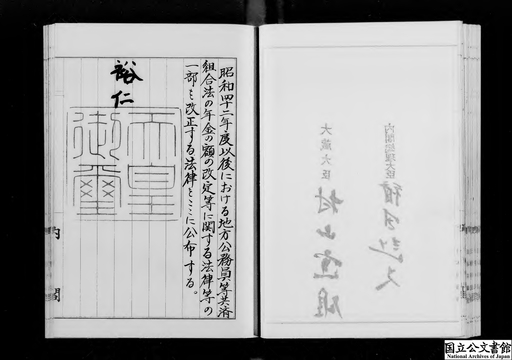 昭和四十二年度以後における地方公務員等共済
組合法の年金の額の改定等に関する法律等の
一部を改正する法律をここに公布する。
裕仁
天皇
御璽
内閣
内閣総理大臣
大蔵大臣 村山達雄
国立公文書館
National Archives of Japan